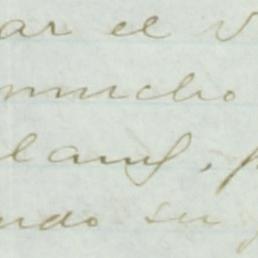 ar el v
mucho
land, p
ndo su